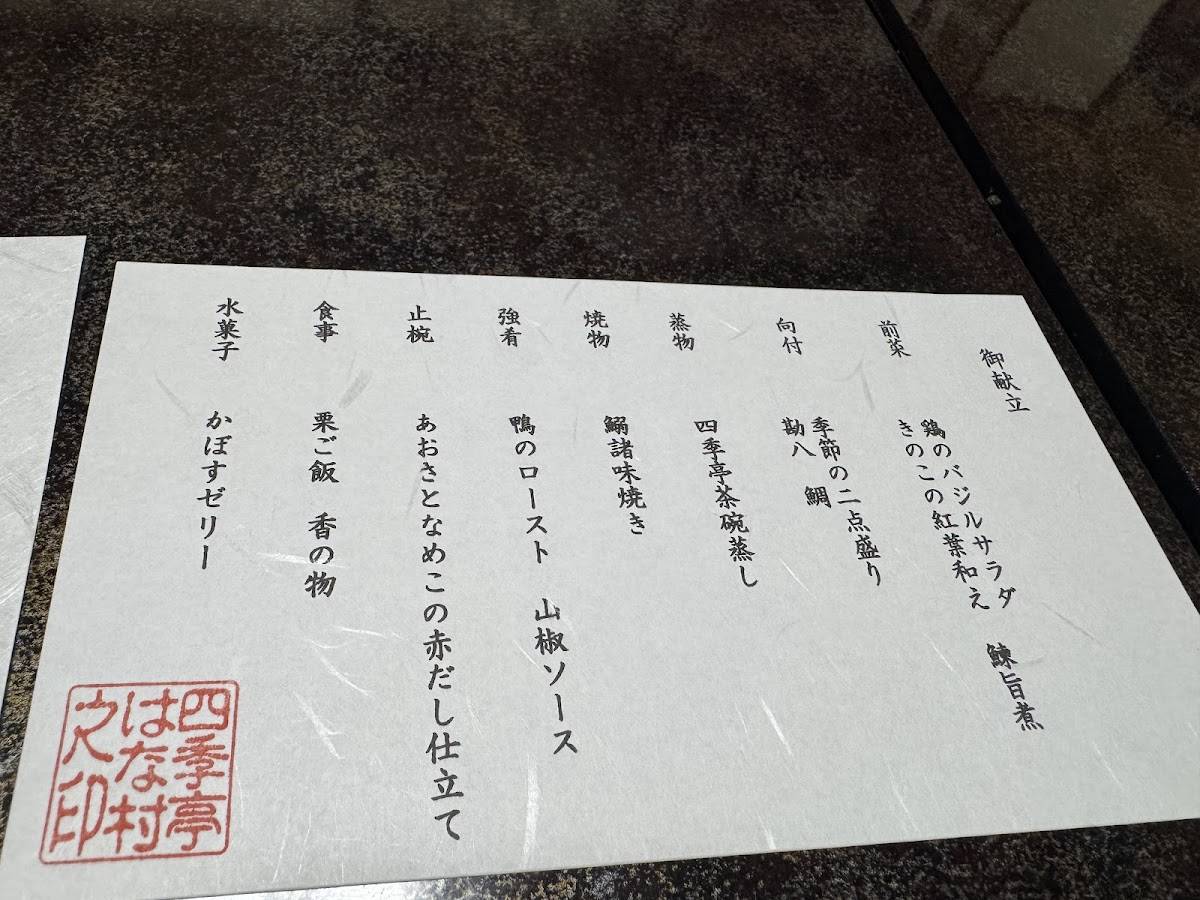 御献立
前菜
鶏のバジルサラダ
きのこの紅葉和え 鰊旨煮
向付
季節の二点盛り
勘八 鯛
蒸物
四季亭茶碗蒸し
焼物
鰯諸味焼き
強肴
鴨のロースト 山椒ソース
止椀
あおさとなめこの赤だし仕立て
食事
栗ご飯 香の物
水菓子
かぼすゼリー
四季亭
はな村
之印